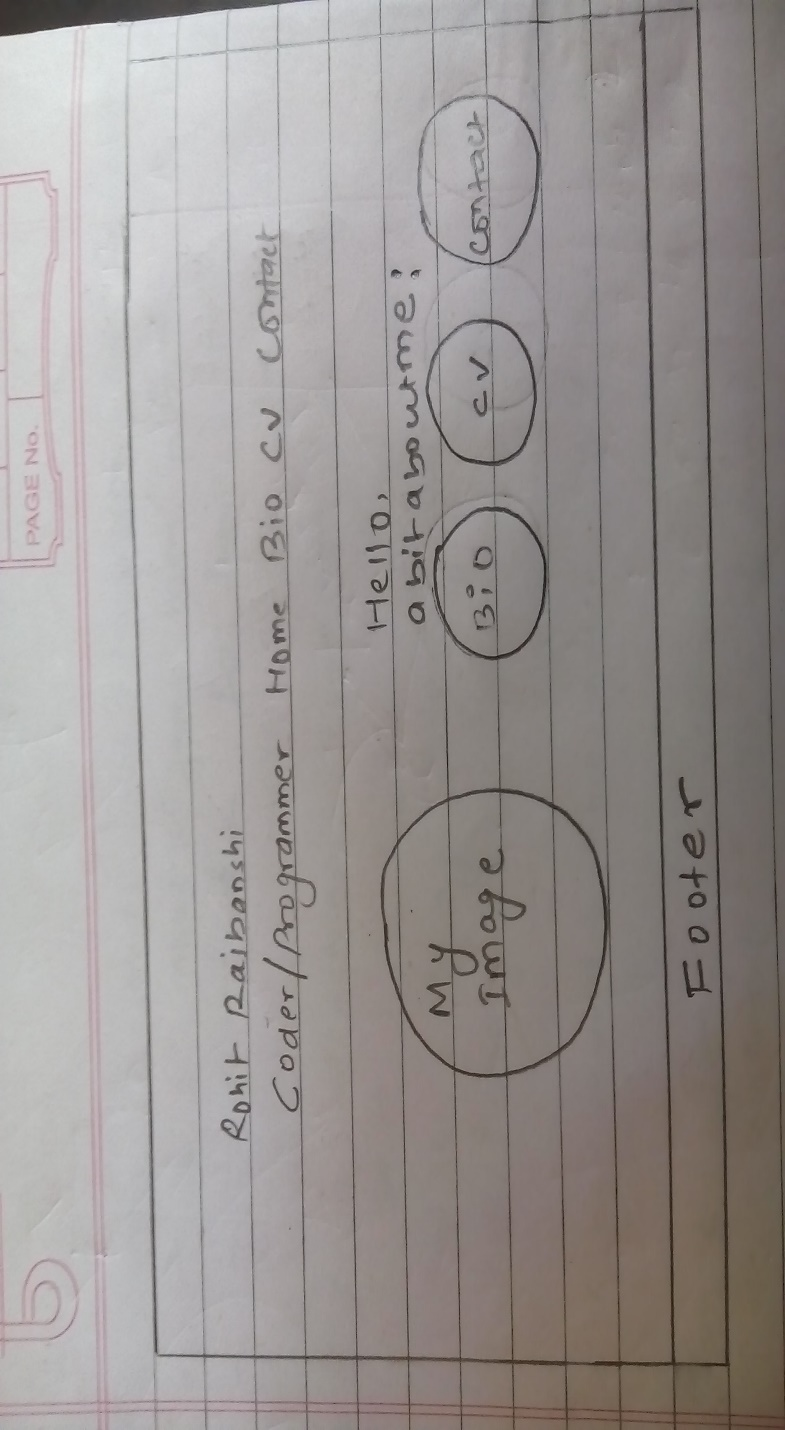 PAGE No.
Rohit Rajbanshi
Coder/Programmer Home Bio CV Contact
Hello,
a bit about me:
My
Image
Bio
CV
Contact
Footer